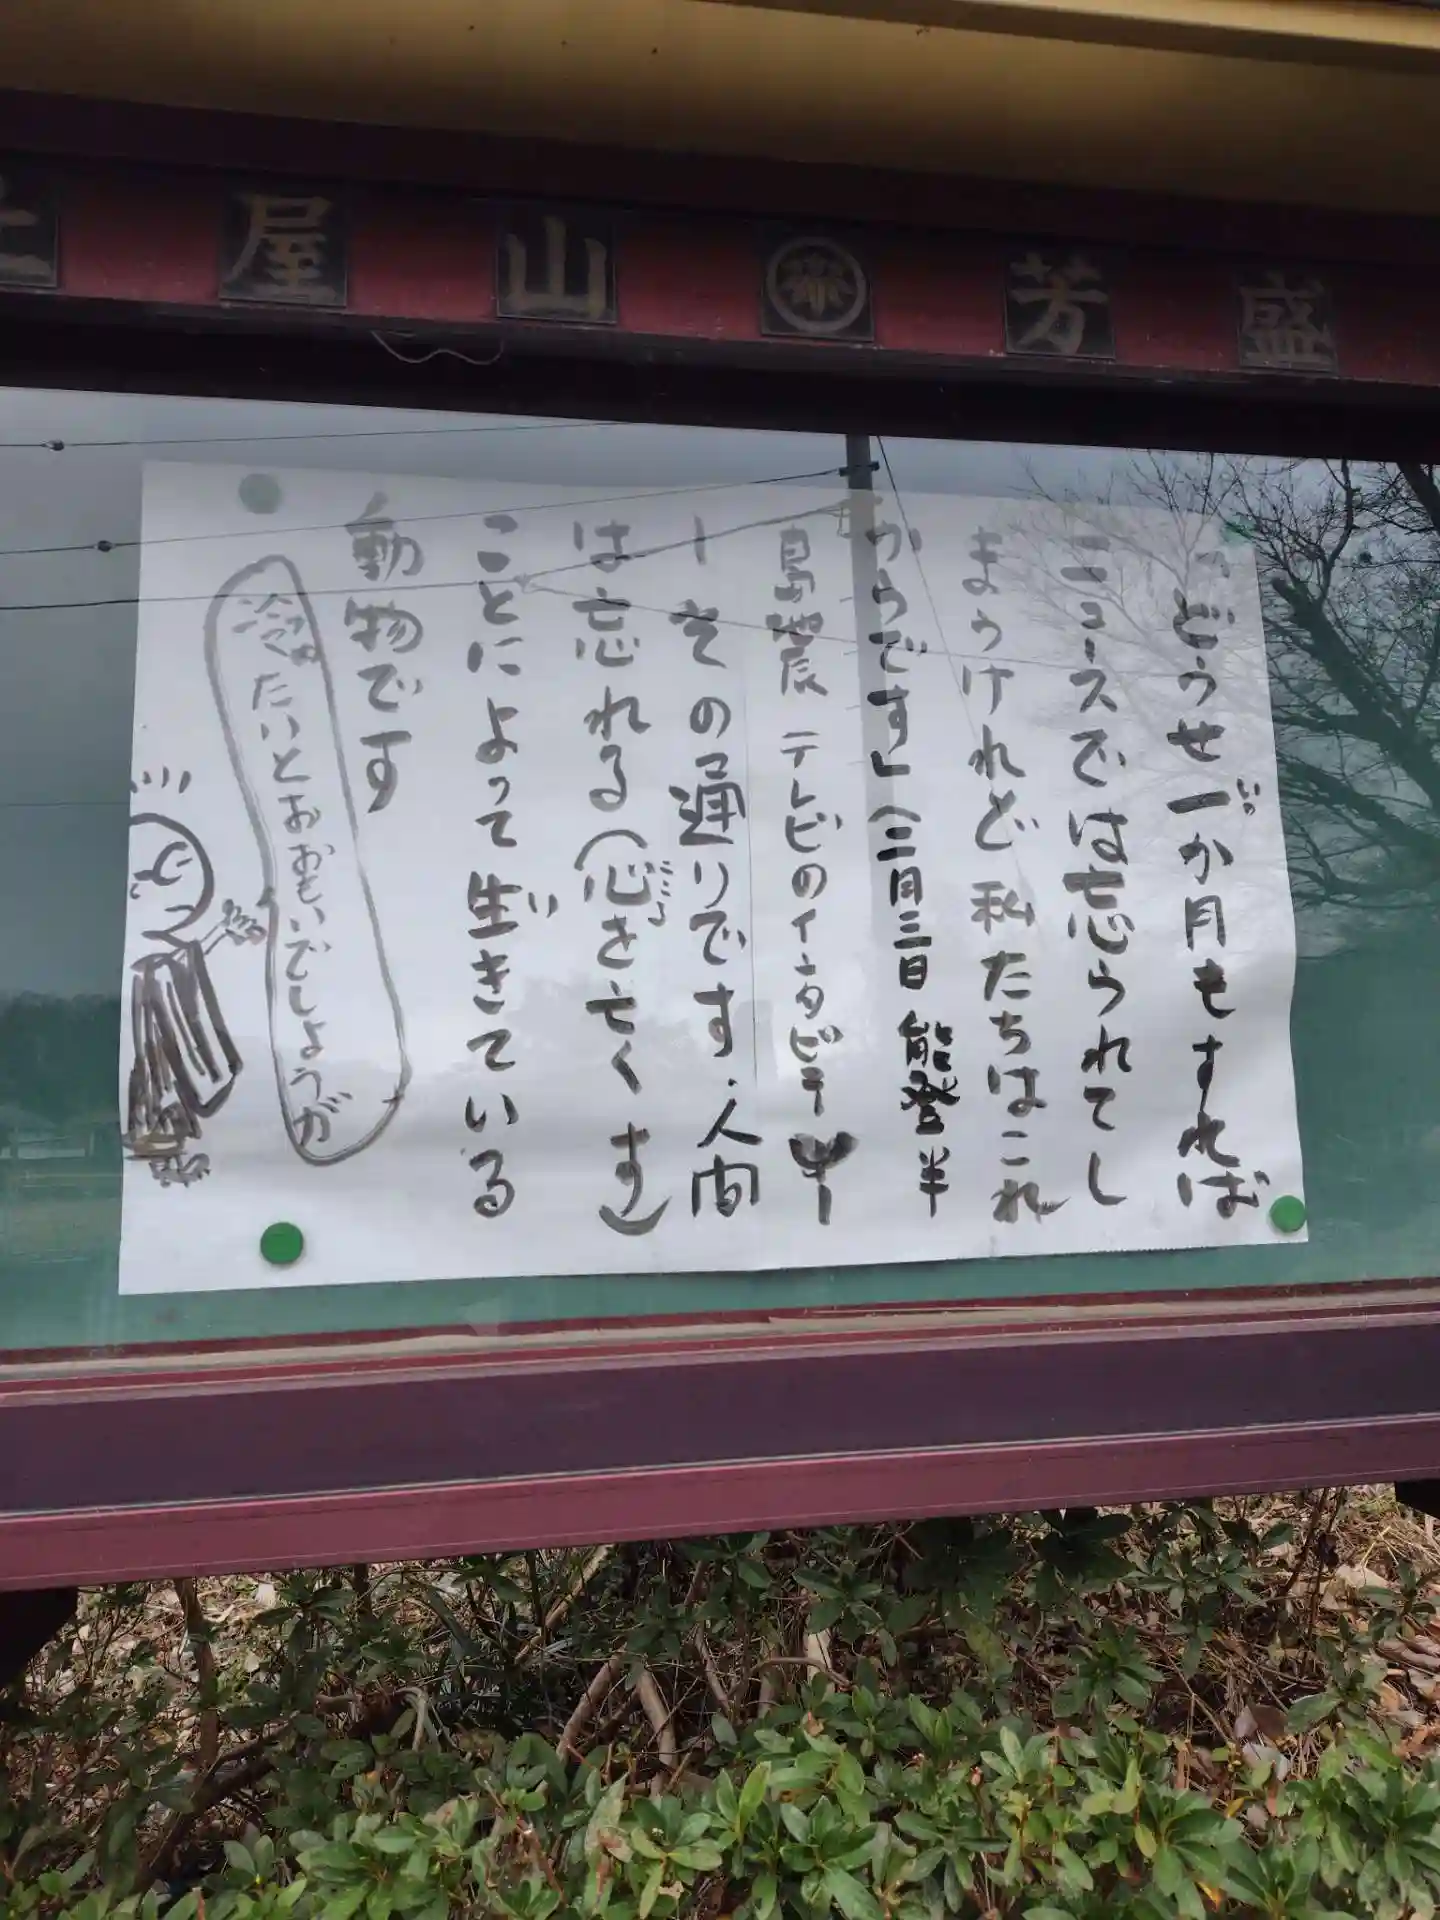 土屋山 芳盛
「どうせ一か月もすれば
いっ
ニュースでは忘られてし
まうけれど私たちはこれ
からです」(二月三日 能登半
島震 テレビのインタビュー
ーその通りです.人間
は忘れる(心を亡くす)
こころ
ことによって生きている
い
動物です
冷たいとおおもいでしょうが
つめ